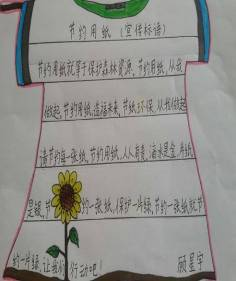 节约用纸（宣传标语）
节约用纸就等于保护森林资源，节约用纸，从我
做起，节约用纸，造福未来，节纸环保，从我做起
请节约每一张纸，节约用纸，人人有责，滴水是金，有纸
是银，节约一张纸，保护一片绿，节约一张纸就节
约一片绿，让我们行动吧！ 顾星宇